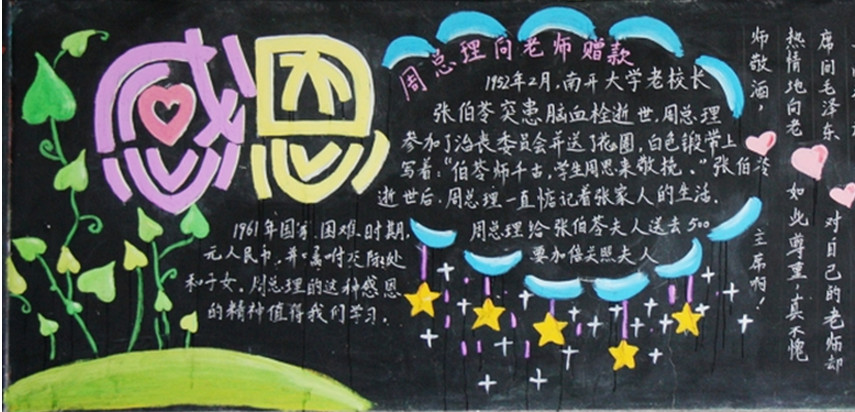 感恩
周总理向老师赠款
1952年2月,南开大学老校长
张伯苓突患脑血栓逝世,周总理
参加了治丧委员会并送了花圈,白色缎带上
写着:“伯苓师千古,学生周恩来敬挽。”张伯苓
逝世后,周总理一直惦记着张家人的生活.
1961年国家困难时期, 周总理给张伯苓夫人送去500
元人民币,并嘱咐交际处 要加倍关照夫人
和子女.周总理的这种感恩
的精神值得我们学习.
席间毛泽东 对自己的老师却
热情地向老 如此尊重,真不愧
师敬酒, 主席啊!